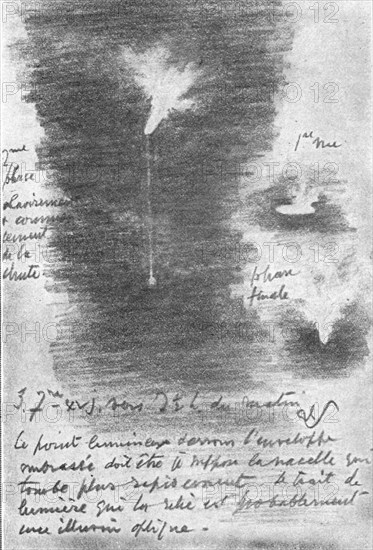 1re vue
2me
phase
éclairement
+ commen
cement
de la
chute -
phase
finale
vers 3½ h. du matin
Le point lumineux dessous l'enveloppe
embrasée doit être je suppose la nacelle qui
tombe plus rapidement le trait de
lumière qui la relie est probablement
une illusion optique -